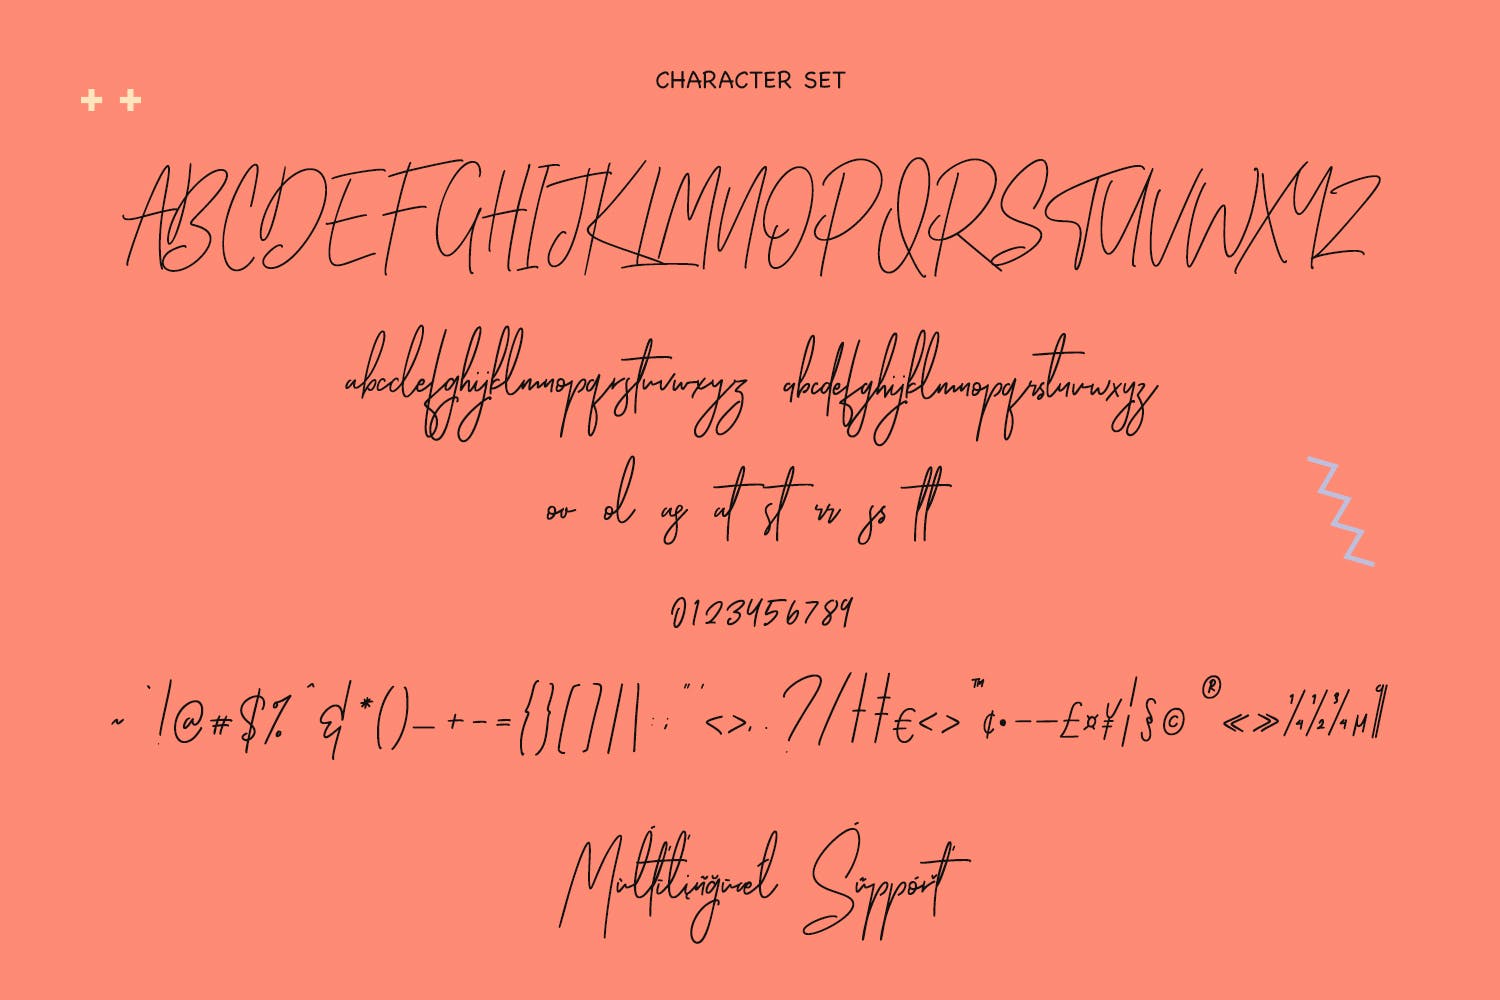 CHARACTER SET
ABCDEFGHIJKLMNOPQRSTUVWXYZ
abcdefghijklmnopqrstuvwxyz abcdefghijklmnopqrstuvwxyz
ov ol ag at st rr ss tt
0123456789
~ ` ! @ # $ % ^ & * ( ) _ + - = { } [ ] \ | : ; " ' < > , . ? / † ‡ € ‹ › ™ ¢ • – — £ ¤ ¥ ¡ § © ® « » ¼ ½ ¾ µ ¶